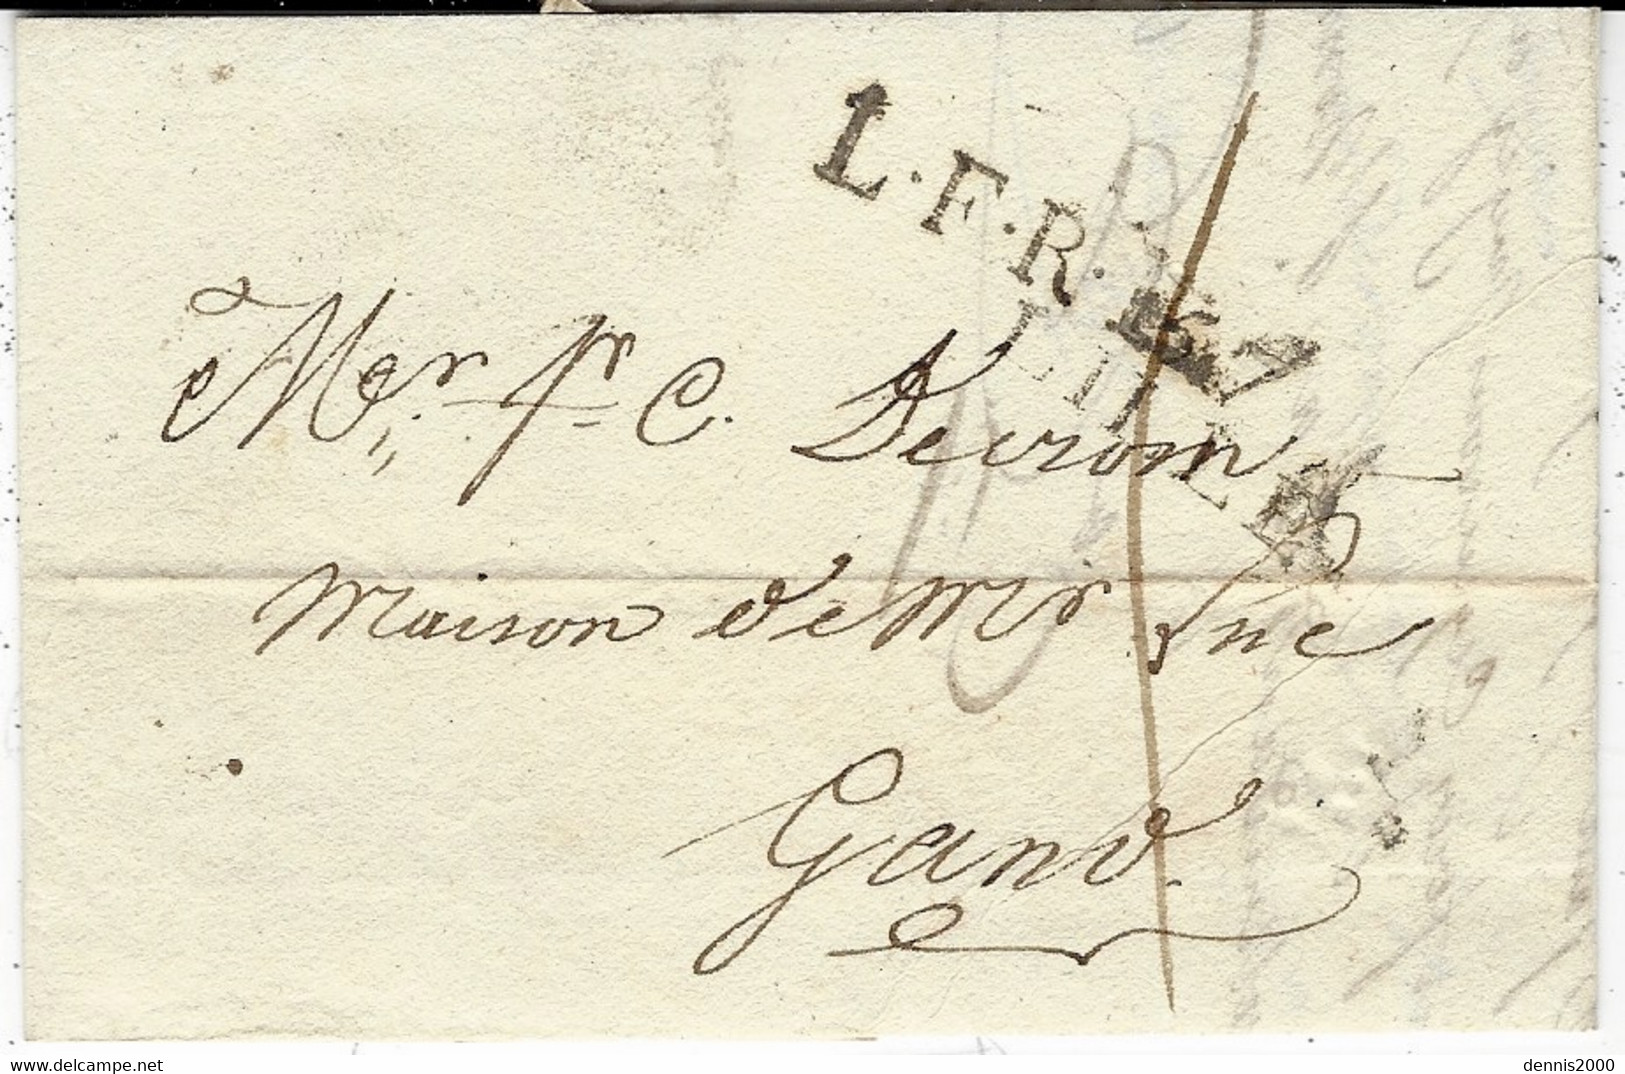 L.F.R.
LILLE
Mer fr C. Decrom
maison de Mr
Gand.
www.delcampe.net
dennis2000